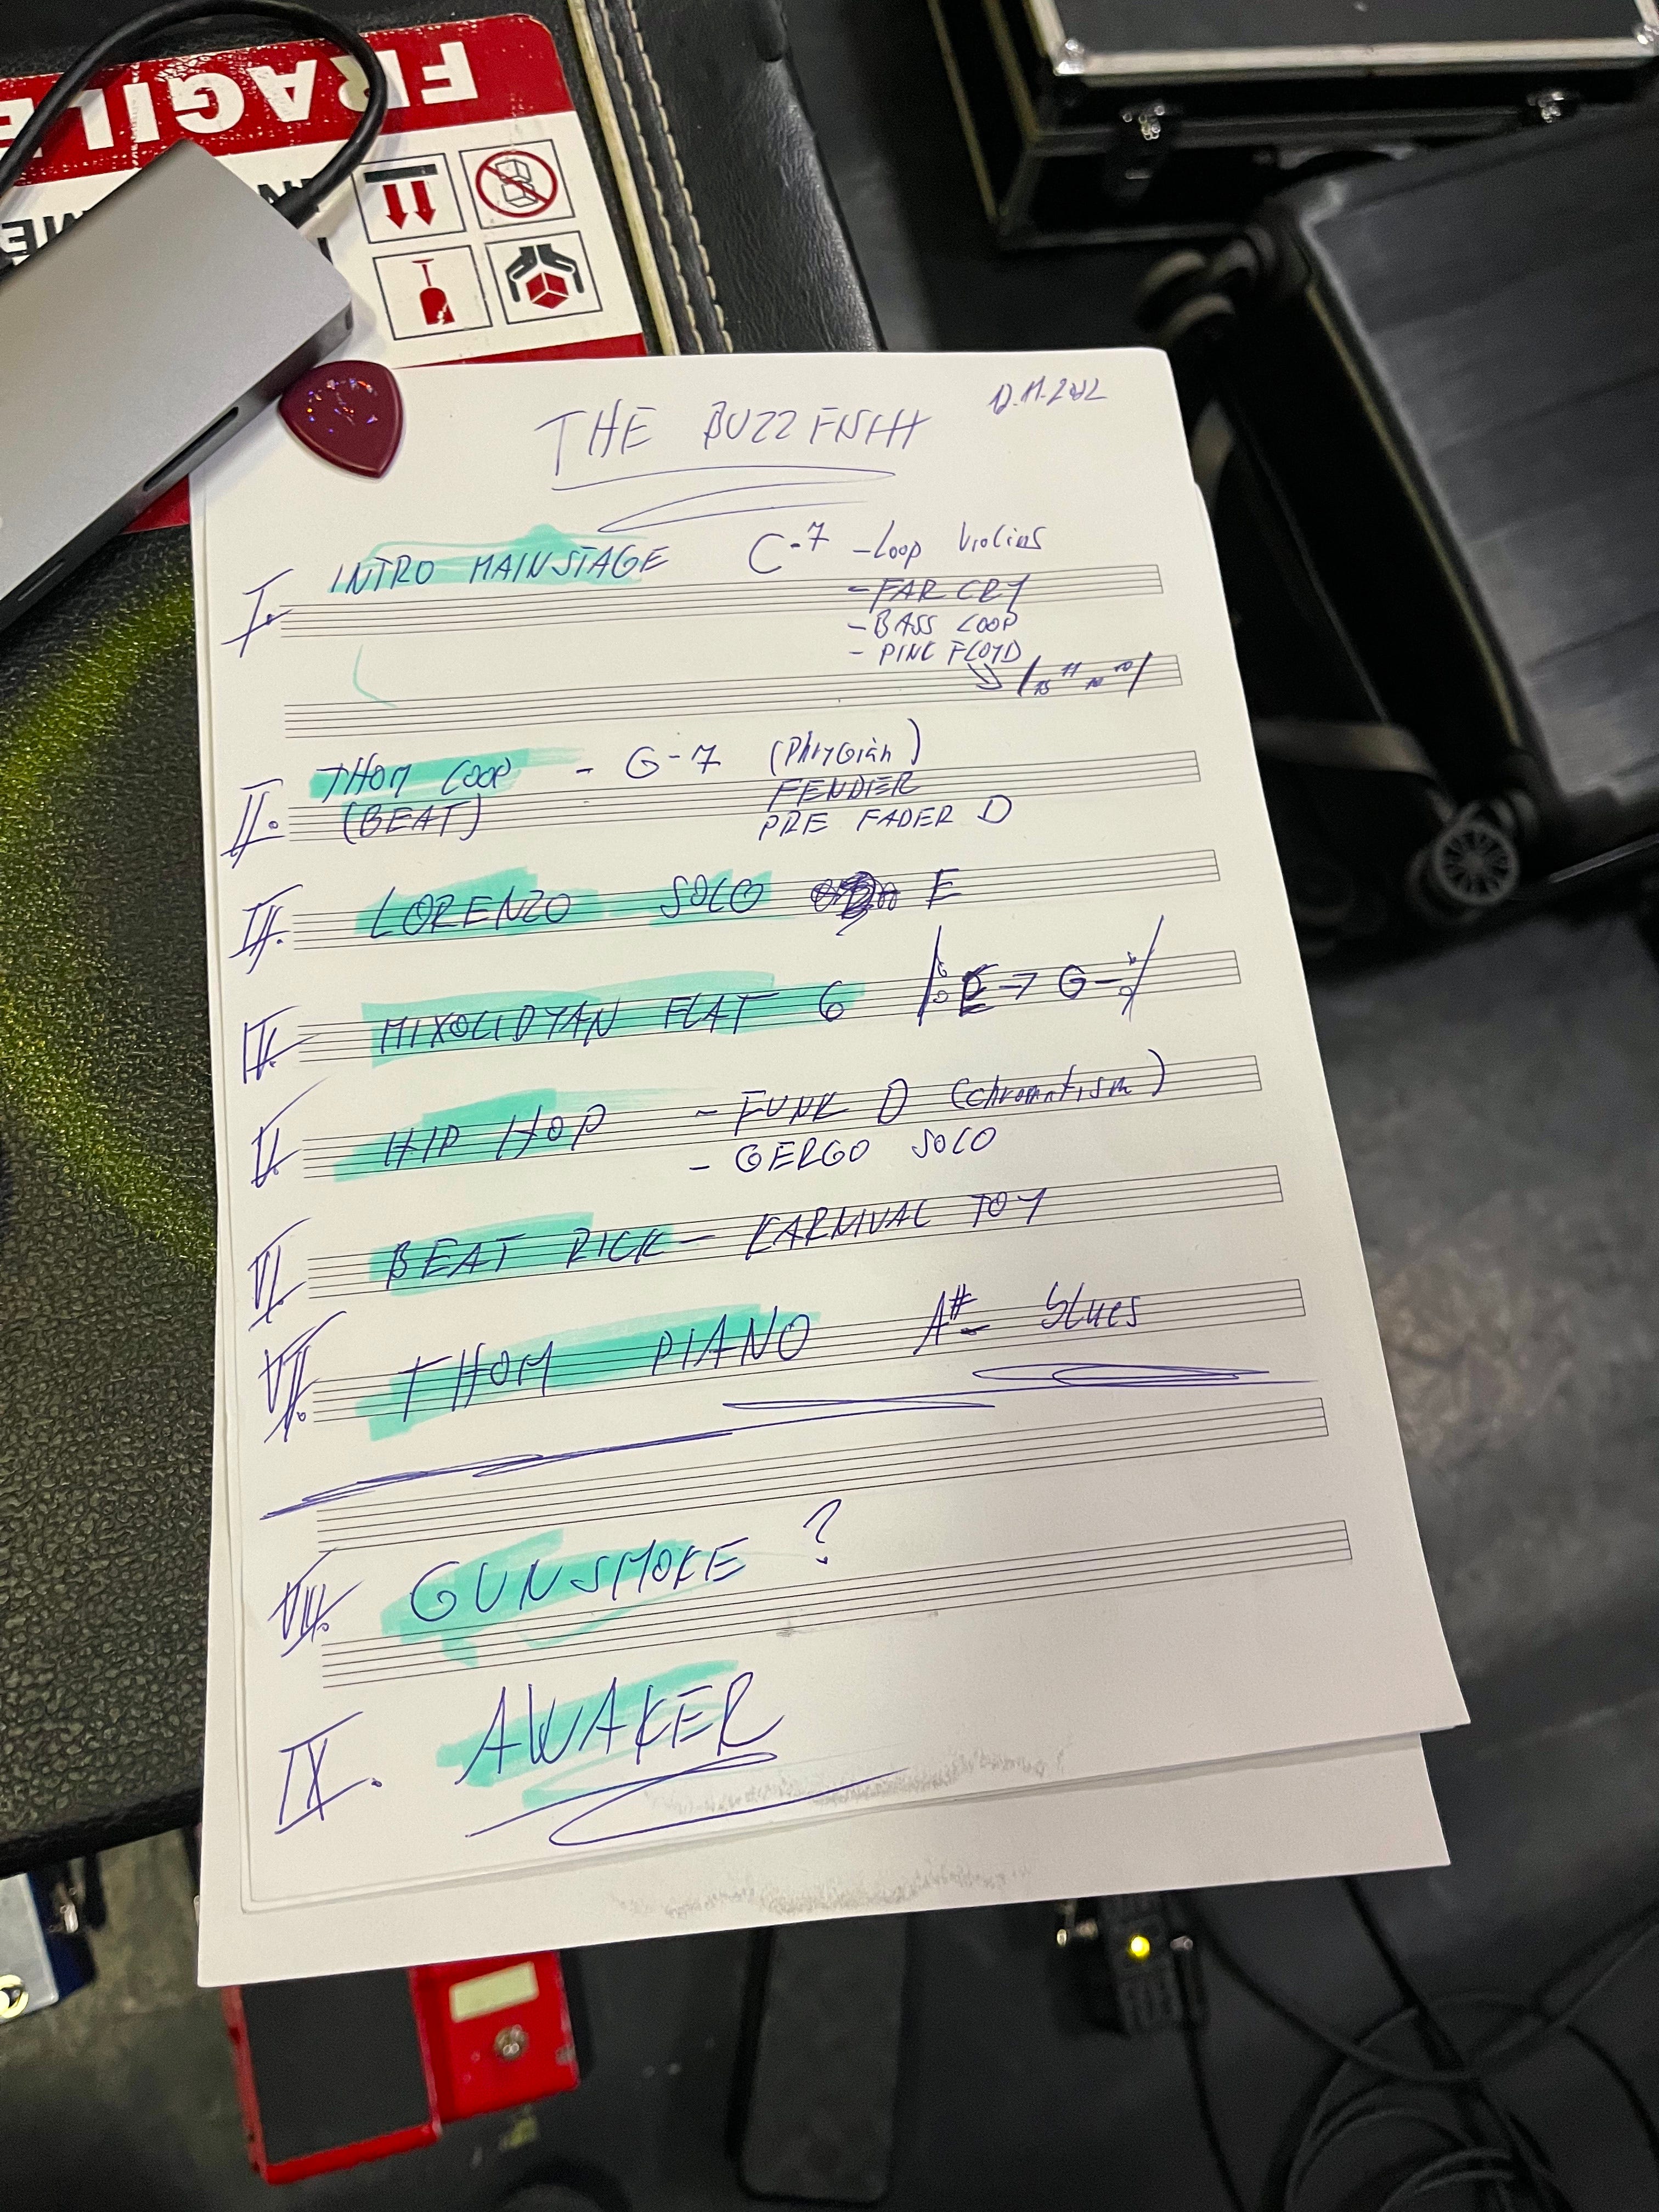 FRAGILE
THE BUZZFISH
I. INTRO MAINSTAGE C-7 -Loop Violins
- FAR CRY
- BASS LOOP
- PINK FLOYD
II. THOM LOOP - G-7 (Phrygian)
(BEAT) FENDER
PRE FADER D
III. LORENZO SOLO E
IV. MIXOLIDYAN FLAT 6 E → G-
V. HIP HOP - FUNK D (chromatism)
- GERGO SOLO
VI. BEAT RICK - KARNIVAL TOY
VII. THOM PIANO A#- blues
VIII. GUNSMOKE ?
IX. AWAKER